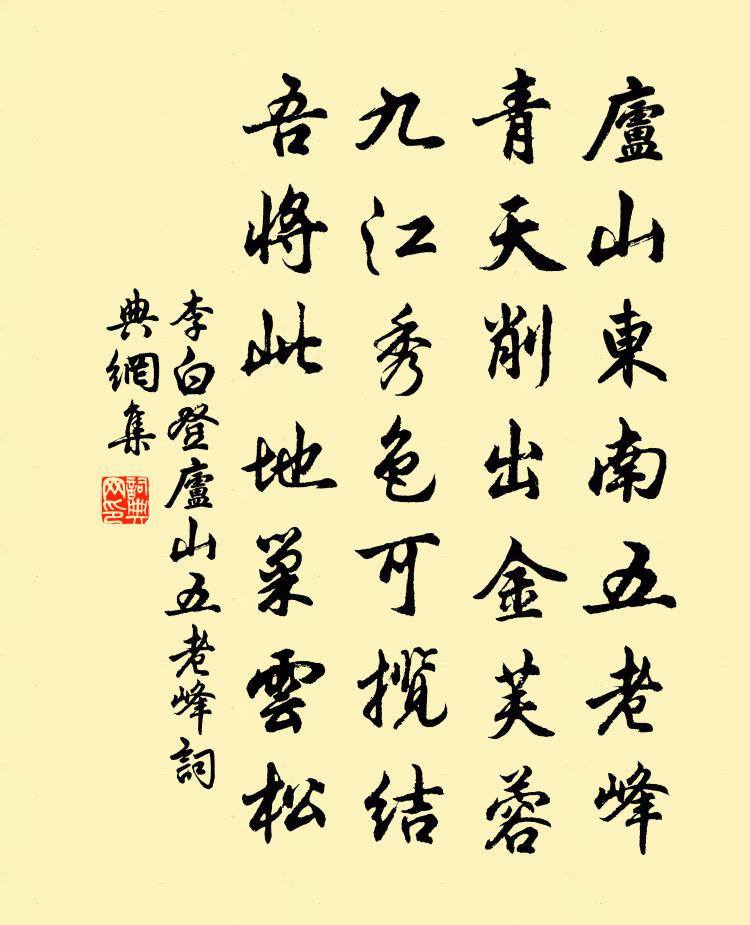 廬山東南五老峰
青天削出金芙蓉
九江秀色可攬结
吾將此地巢雲松
李白登廬山五老峰詞
典網集
詞典网印